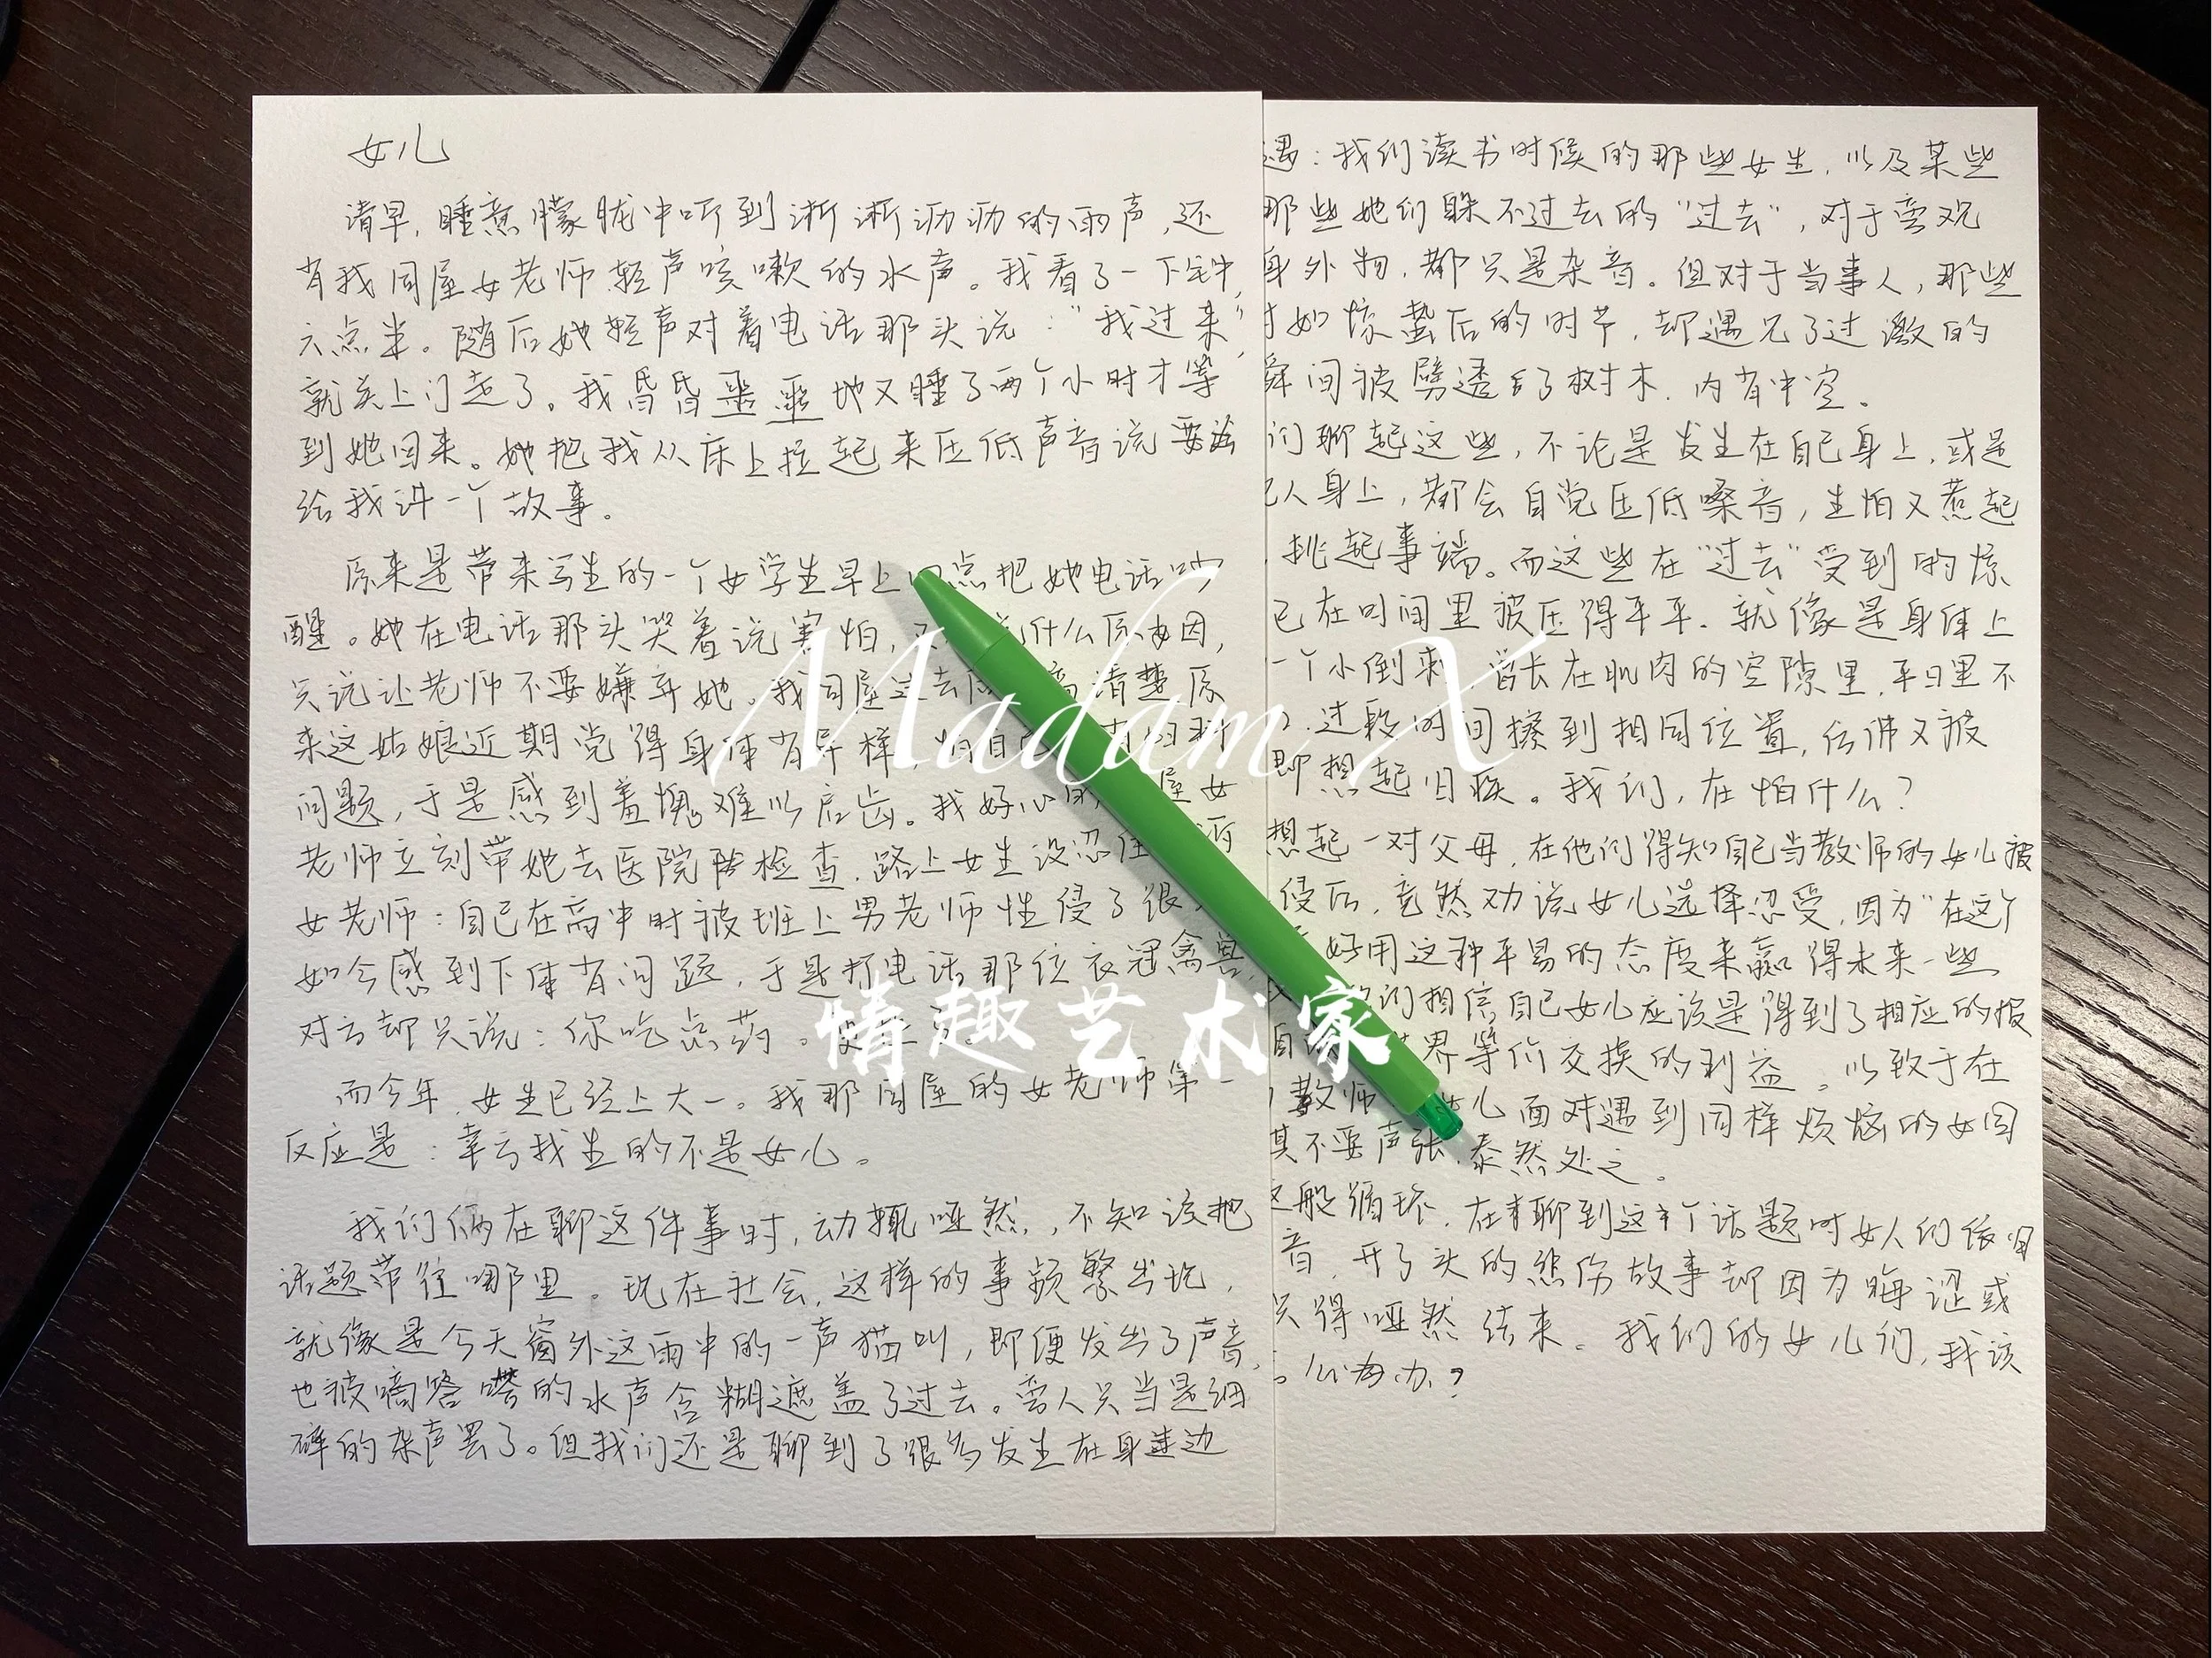 女儿
清早，睡意朦胧中听到淅淅沥沥的雨声，还
有我同屋女老师轻声咳嗽的水声。我看了一下钟，
六点半。随后她轻声对着电话那头说："我过来"，
就关上门走了。我昏昏噩噩地又睡了两个小时才等
到她回来。她把我从床上拉起来压低声音说要
给我讲一个故事。
原来是带来写生的一个女学生早上 点把她电话吵
醒。她在电话那头哭着说害怕， 什么原因，
只说让老师不要嫌弃她。我同屋 去 清楚原
来这姑娘近期觉得身体有异样 怕自己
问题，于是感到羞愧难以启齿。我好心的 屋女
老师立刻带她去医院检查，路上女生没忍住
女老师：自己在高中时被班上男老师性侵了很
如今感到下体有问题，于是打电话那位衣冠禽兽，
对方却只说：你吃点药。
而今年，女生已经上大一。我那同屋的女老师第一
反应是：幸亏我生的不是女儿。
我们俩在聊这件事时，动辄哑然，不知该把
话题带往哪里。现在社会，这样的事频繁出现，
就像是今天窗外这雨中的一声猫叫，即便发出了声音，
也被嘀嗒嗒的水声含糊遮盖了过去。旁人只当是细
碎的杂声罢了。但我们还是聊到了很多发生在身边
遇：我们读书时候的那些女生，以及某些
那些她们躲不过去的"过去"，对于旁观
身外物，都只是杂音。但对于当事人，那些
如惊蛰后的时节，却遇见了过激的
瞬间被劈透了树木，内有中空。
们聊起这些，不论是发生在自己身上，或是
人身上，都会自觉压低嗓音，生怕又惹起
，挑起事端。而这些在"过去"受到的惊
已在时间里被压得平平，就像是身体上
一个小倒刺，曾长在肌肉的空隙里，平日里不
，过段时间擦到相同位置，仿佛又被
即想起旧疾。我们，在怕什么？
想起一对父母，在他们得知自己当教师的女儿被
侵后，竟然劝说女儿选择忍受，因为"在这个
好用这种平易的态度来赢得未来一些
们相信自己女儿应该是得到了相应的报
界等价交换的利益。以致于在
教师 女儿面对遇到同样烦恼的女同
其不要声张，泰然处之。
这般循环，在聊到这个话题时女人们依旧
音，开了头的悲伤故事却因为晦涩或
只得哑然结束。我们的女儿们，我该
么办？
Madam X
情趣艺术家